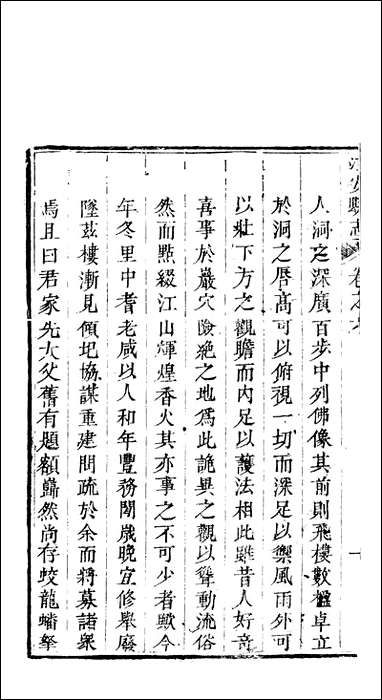 江安縣志
卷之六
人洞之深廣百步中列佛像其前則飛樓數楹卓立
於洞之唇髙可以俯視一切而深足以禦風雨外可
以壯下方之觀瞻而内足以護法相此雖昔人好竒
喜事於巖穴險絶之地爲此詭異之觀以聳動流俗
然而點綴江山輝煌香火其亦事之不可少者歟今
年冬里中耆老咸以人和年豐務閒歲晚宜修舉廢
墜兹樓漸見傾圮協謀重建問疏於余而將募諸衆
焉且曰君家先大父舊有題額巋然尚存蛟龍蟠拏